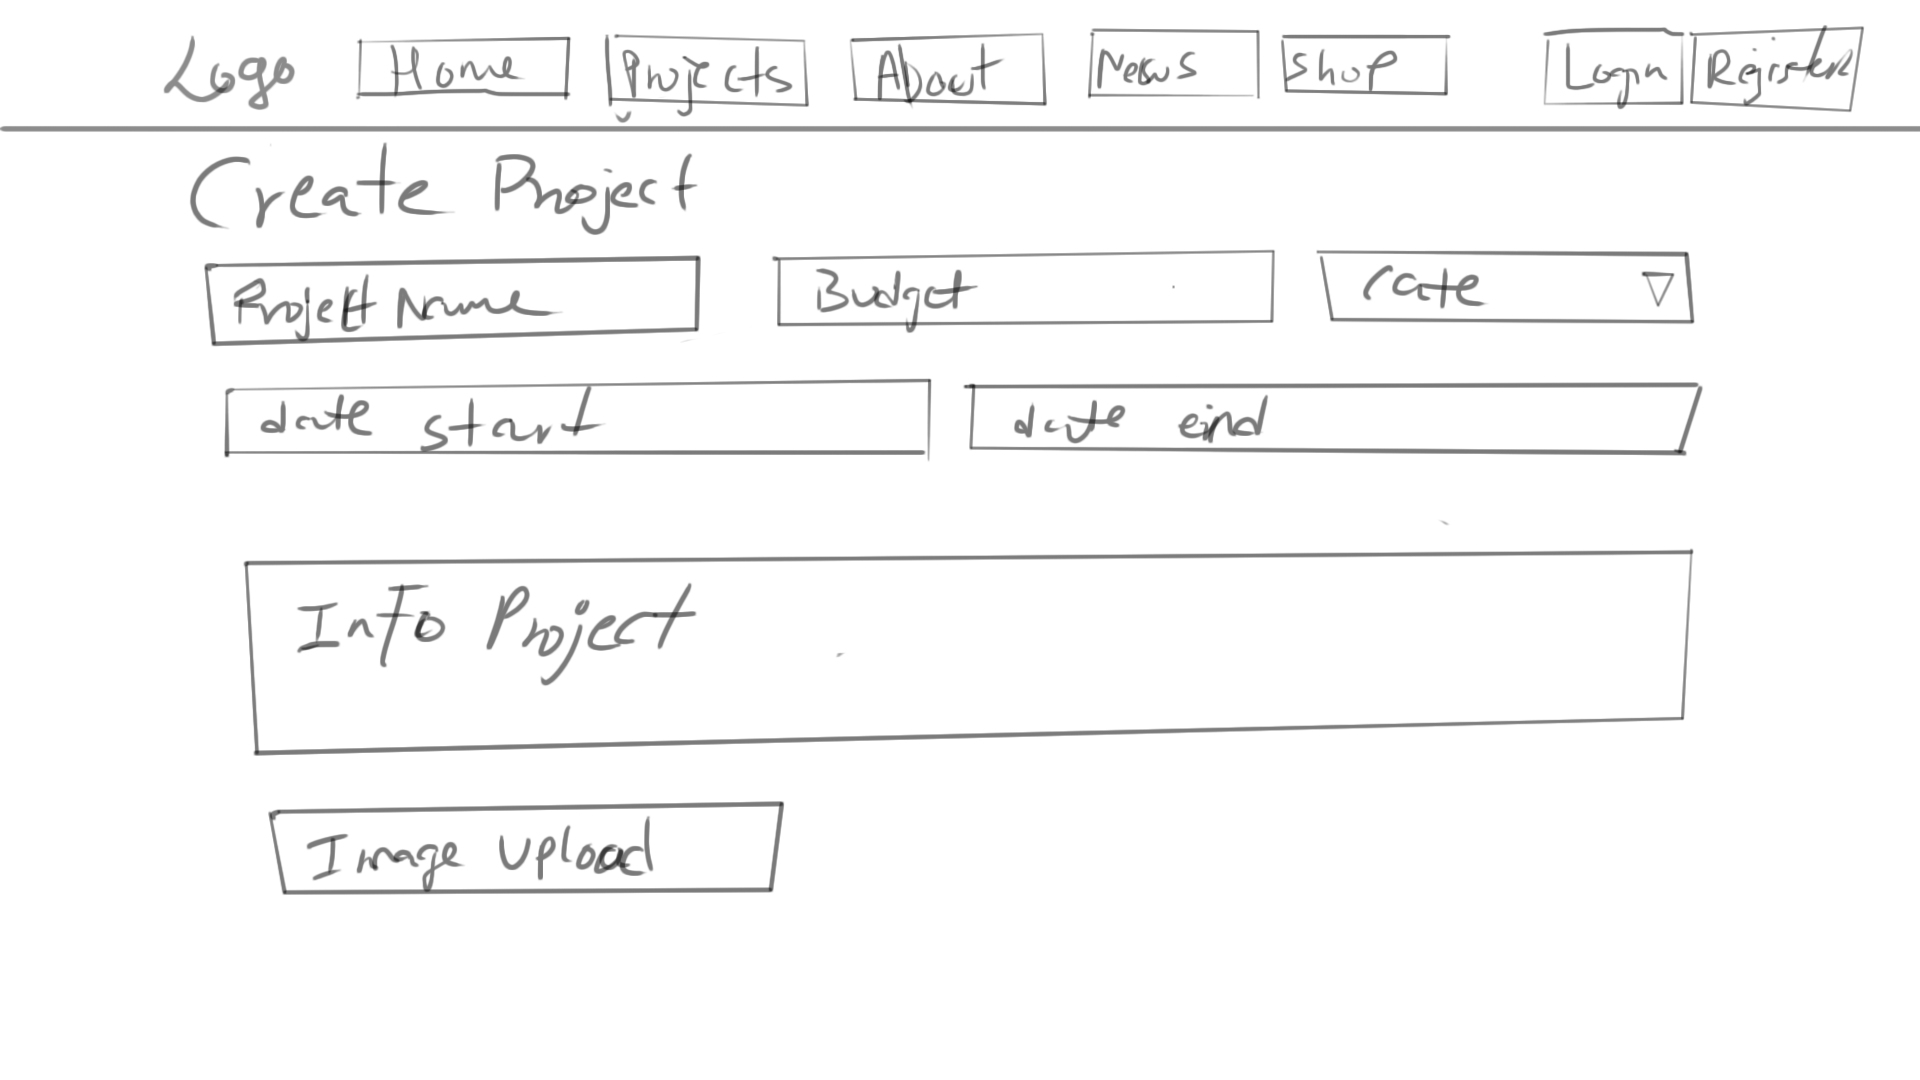 Logo Home Projects About News Shop Login Register
Create Project
Project Name Budget Cate
date start date eind
Info Project
Image Upload